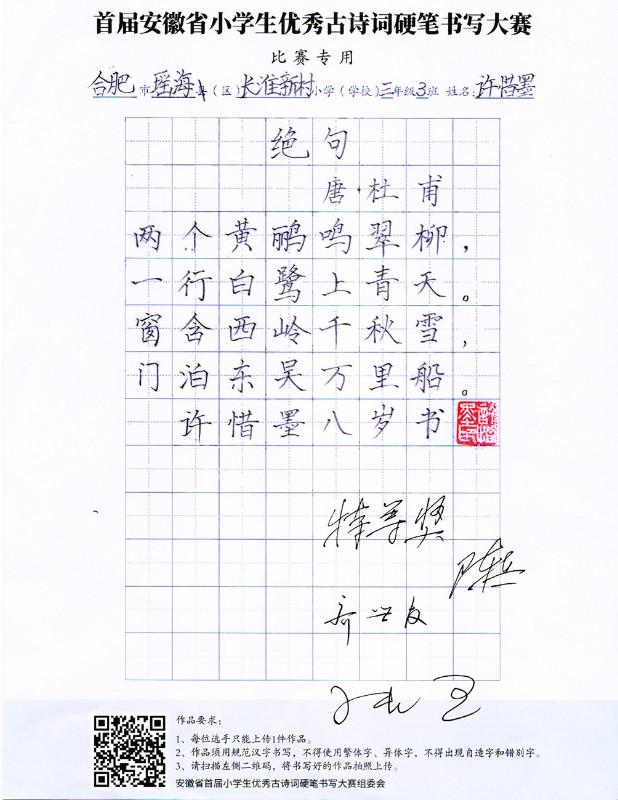 首届安徽省小学生优秀古诗词硬笔书写大赛
比赛专用
合肥市瑶海县(区)长淮新村小学(学校)三年级3班 姓名:许惜墨
绝句
唐·杜甫
两个黄鹂鸣翠柳，
一行白鹭上青天。
窗含西岭千秋雪，
门泊东吴万里船。
许惜墨八岁书
特等奖
作品要求：
1、每位选手只能上传1件作品。
2、作品须用规范汉字书写，不得使用繁体字、异体字，不得出现自造字和错别字。
3、请扫描左侧二维码，将书写好的作品拍照上传。
安徽省首届小学生优秀古诗词硬笔书写大赛组委会